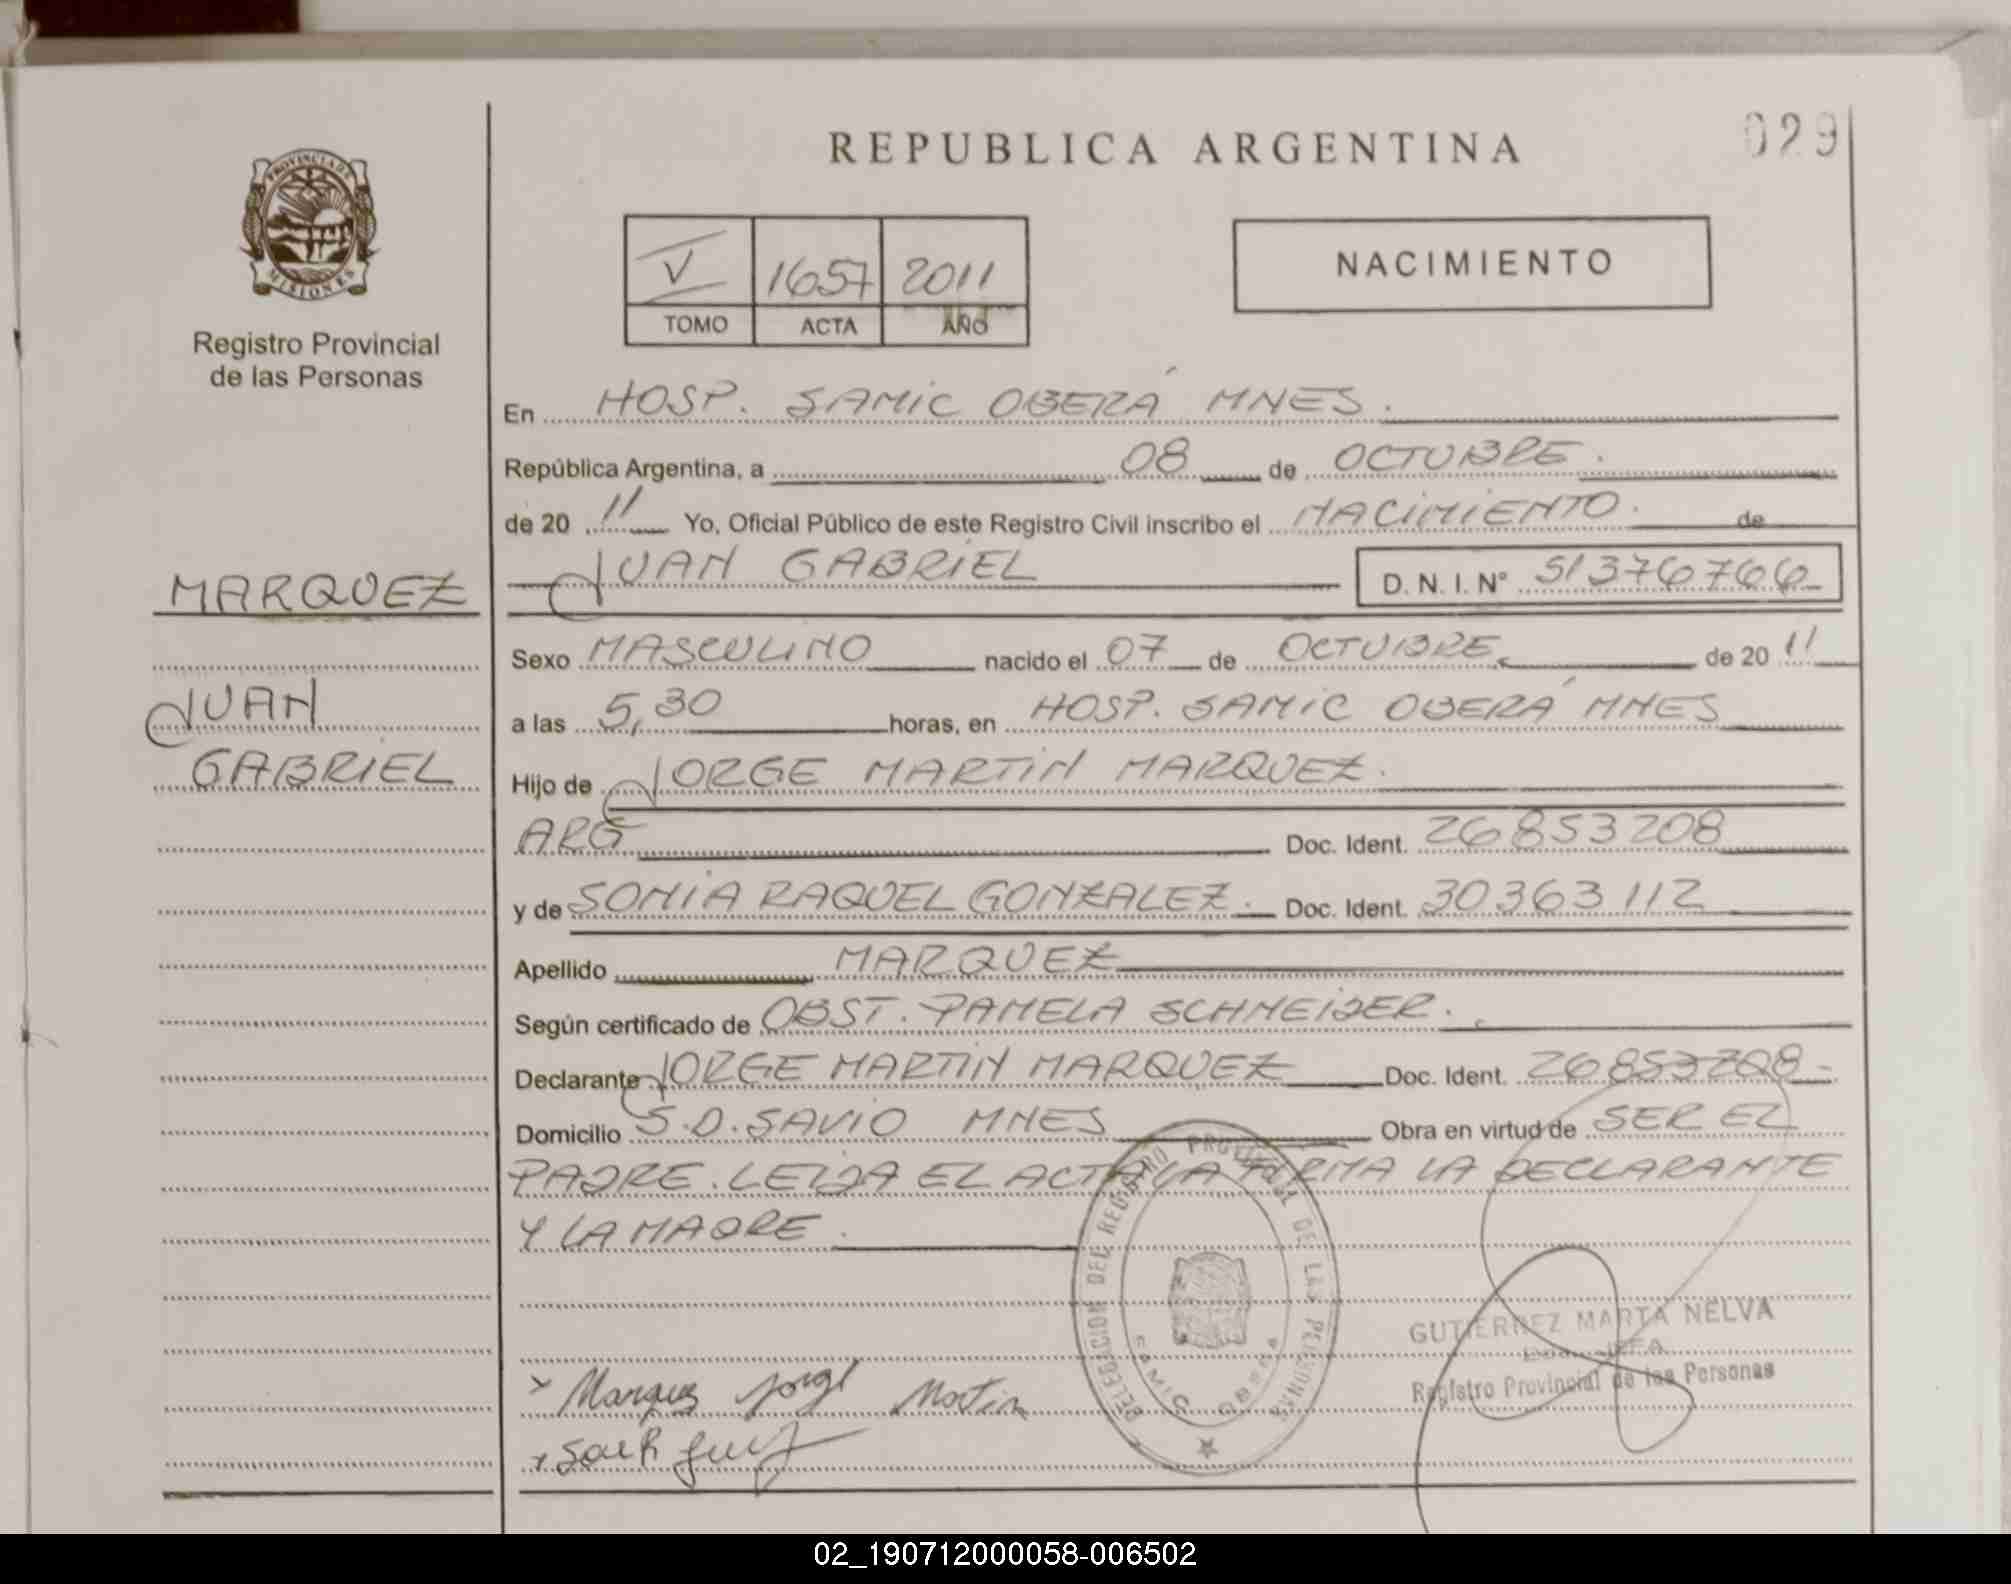 029
REPUBLICA ARGENTINA
PROVINCIA DE MISIONES
Registro Provincial
de las Personas
V 1657 2011
TOMO ACTA AÑO
NACIMIENTO
MARQUEZ
JUAN
GABRIEL
En HOSP. SAMIC OBERÁ MNES.
República Argentina, a 08 de OCTUBRE.
de 20 11 Yo, Oficial Público de este Registro Civil inscribo el NACIMIENTO. de
JUAN GABRIEL D. N. I. N° 51376766
Sexo MASCULINO nacido el 07 de OCTUBRE de 20 11
a las 5,30 horas, en HOSP. SAMIC OBERÁ MNES
Hijo de JORGE MARTIN MARQUEZ.
ARG Doc. Ident. 26853208
y de SONIA RAQUEL GONZALEZ. Doc. Ident. 30363112
Apellido MARQUEZ
Según certificado de OBST. PAMELA SCHNEIDER.
Declarante JORGE MARTIN MARQUEZ Doc. Ident. 26853208
Domicilio S.D. SAVIO MNES Obra en virtud de SER EL
PADRE. LEIDA EL ACTA LA FIRMA LA DECLARANTE
Y LA MADRE.
DELEGACION DEL REGISTRO PROVINCIAL DE LAS PERSONAS
SAMIC OBERA
GUTIERREZ MARTA NELVA
Registro Provincial de las Personas
Marquez Jorge Martin
02_190712000058-006502